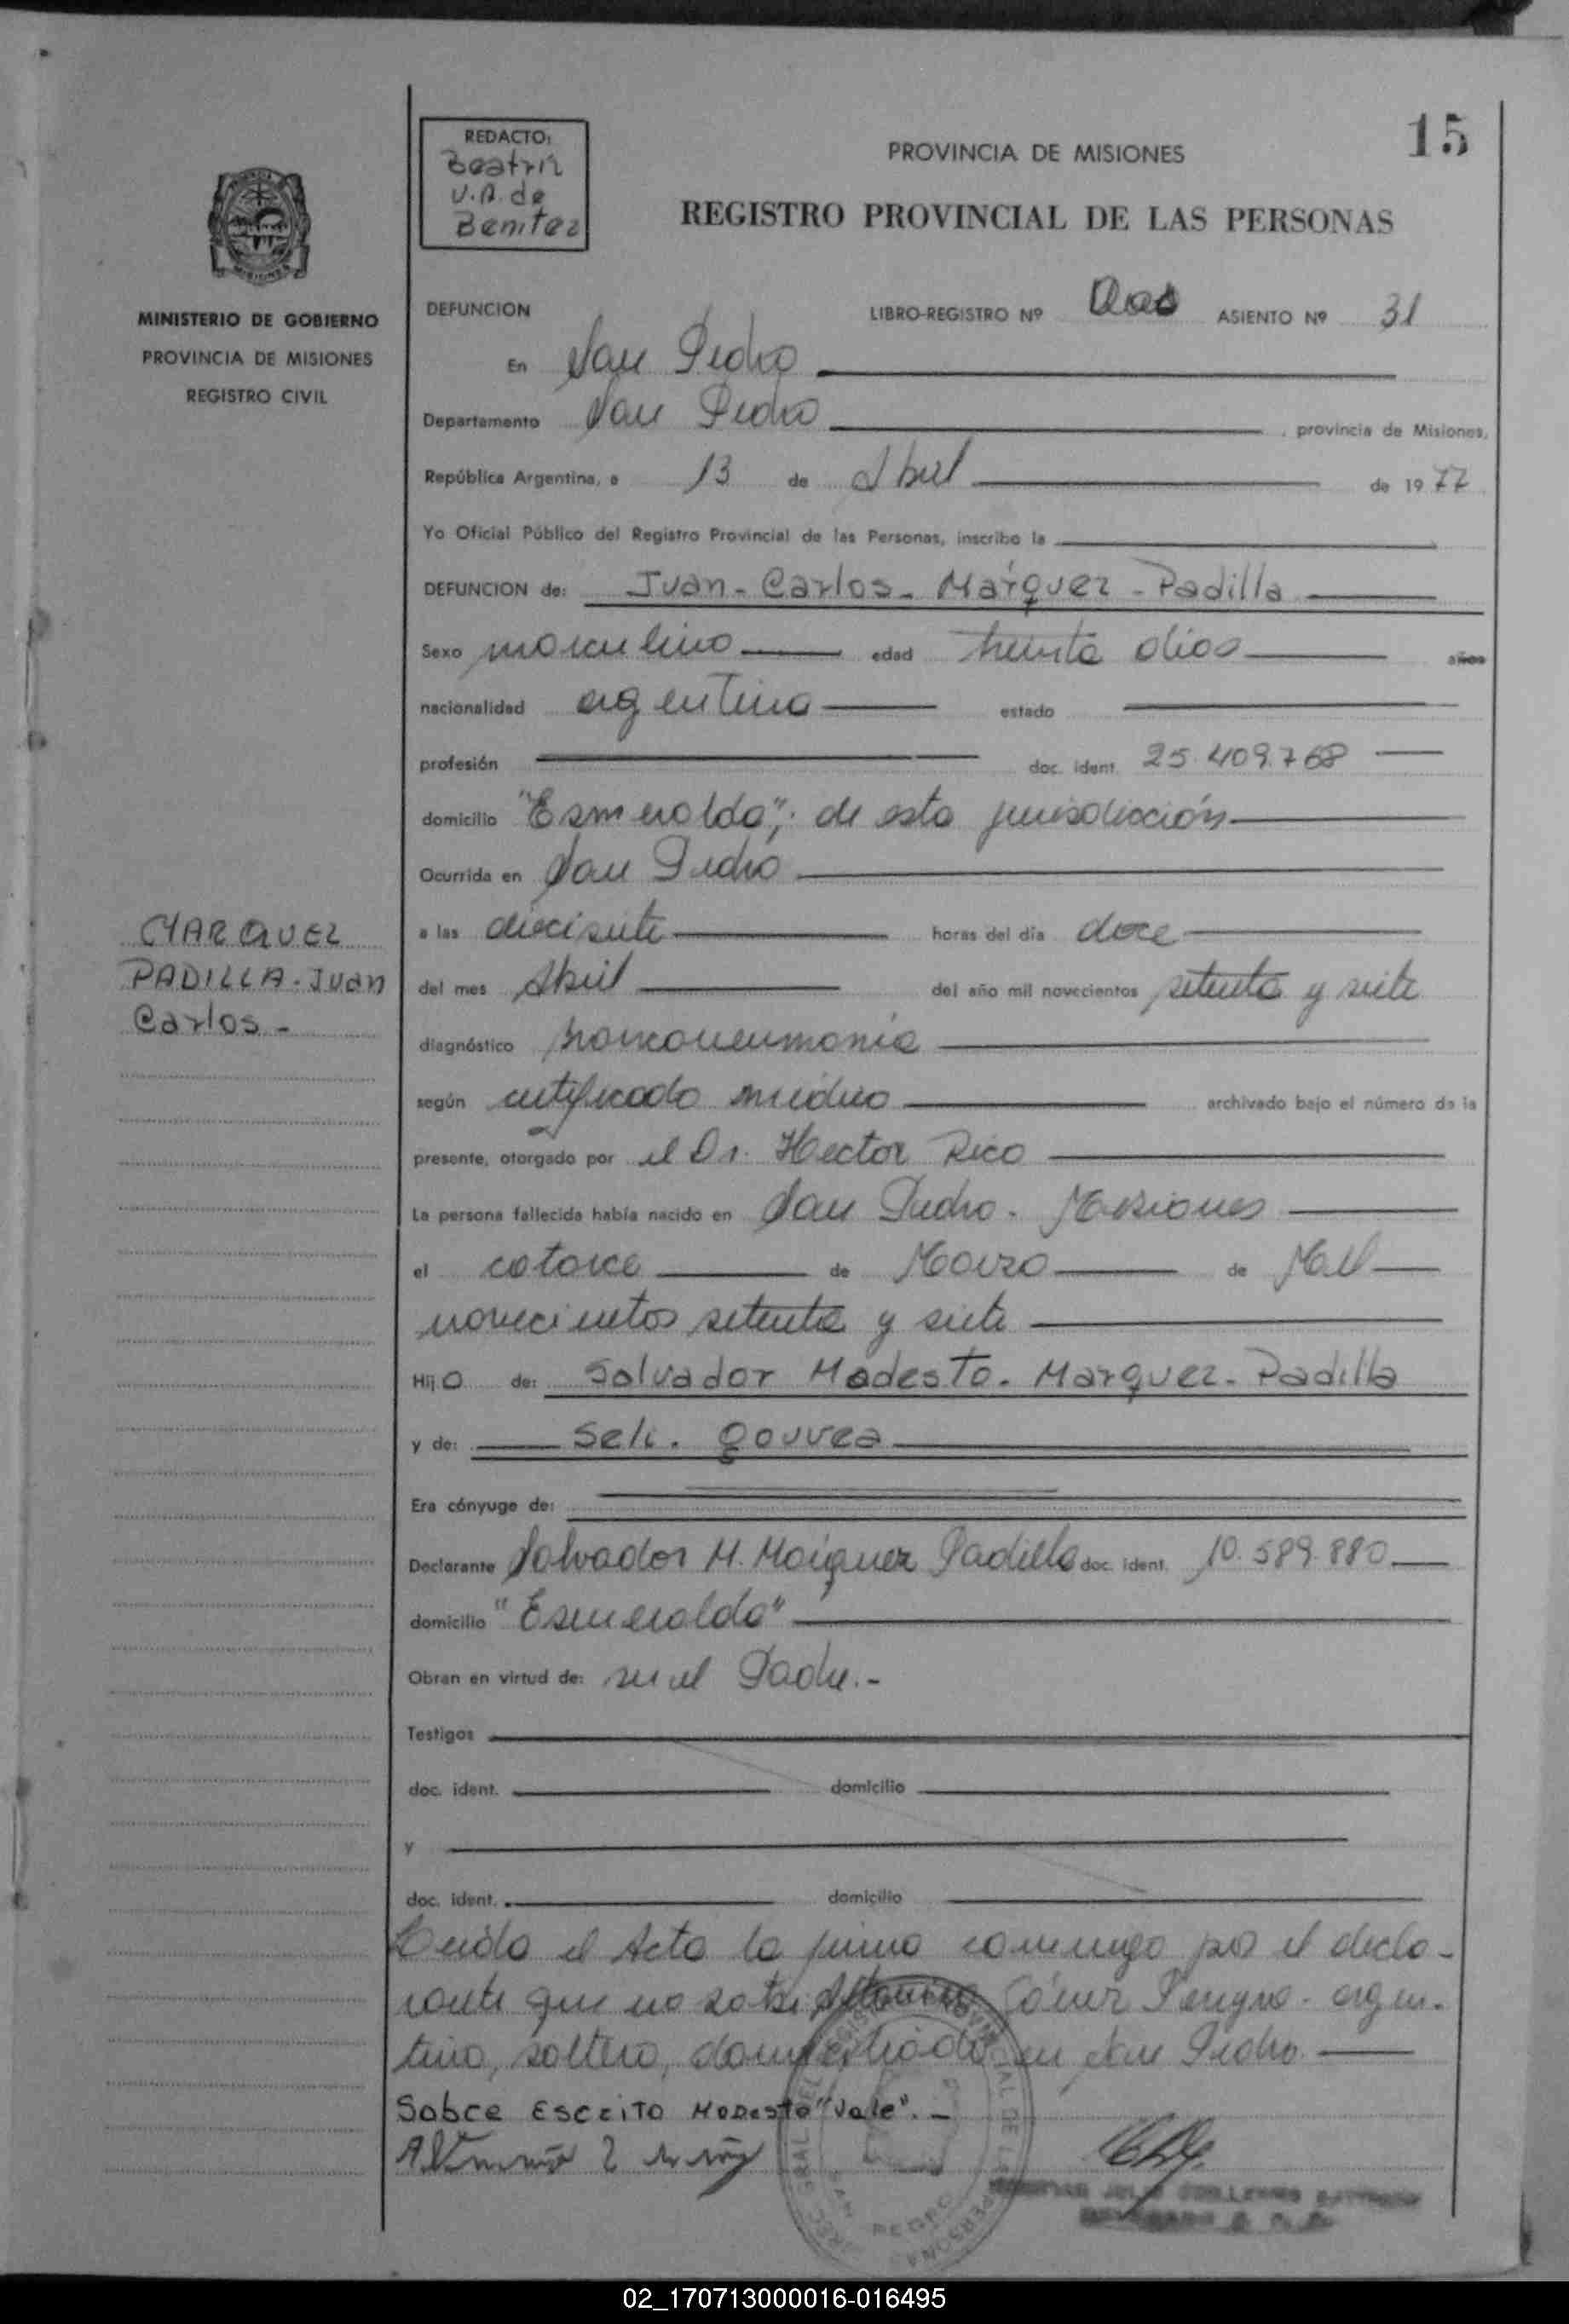 15
REDACTO:
Beatriz
V.A. de
Benitez
PROVINCIA DE MISIONES
REGISTRO PROVINCIAL DE LAS PERSONAS
MINISTERIO DE GOBIERNO
PROVINCIA DE MISIONES
REGISTRO CIVIL
DEFUNCION LIBRO-REGISTRO Nº Dos ASIENTO Nº 31
En San Pedro
Departamento San Pedro , provincia de Misiones,
República Argentina, a 13 de Abril de 1977
Yo Oficial Público del Registro Provincial de las Personas, inscribo la
DEFUNCION de: Juan - Carlos - Márquez - Padilla
Sexo masculino edad treinta días años
nacionalidad argentina estado
profesión doc. ident. 25.409.768
domicilio "Esmeralda", de esta jurisdicción
Ocurrida en San Pedro
a las diecisiete horas del día doce
del mes Abril del año mil novecientos setenta y siete
MARQUEZ
PADILLA - Juan
Carlos -
diagnóstico bronconeumonia
según certificado médico archivado bajo el número de la
presente, otorgado por el Dr. Hector Rico
La persona fallecida había nacido en San Pedro - Misiones
el catorce de Marzo de Mil
novecientos setenta y siete
Hijo de: Salvador Modesto - Marquez - Padilla
y de: Seli. Gouvea
Era cónyuge de:
Declarante Salvador M. Márquez Padilla doc. ident. 10.589.880
domicilio "Esmeralda"
Obran en virtud de: ser el Padre.-
Testigos
doc. ident. domicilio
y
doc. ident. domicilio
Leída el Acta la firma conmigo por el decla-
rante que no sabe Gómez argen-
tino, soltero, domiciliado en San Pedro.
Sobre Escrito Modesto "Vale". -
02_170713000016-016495